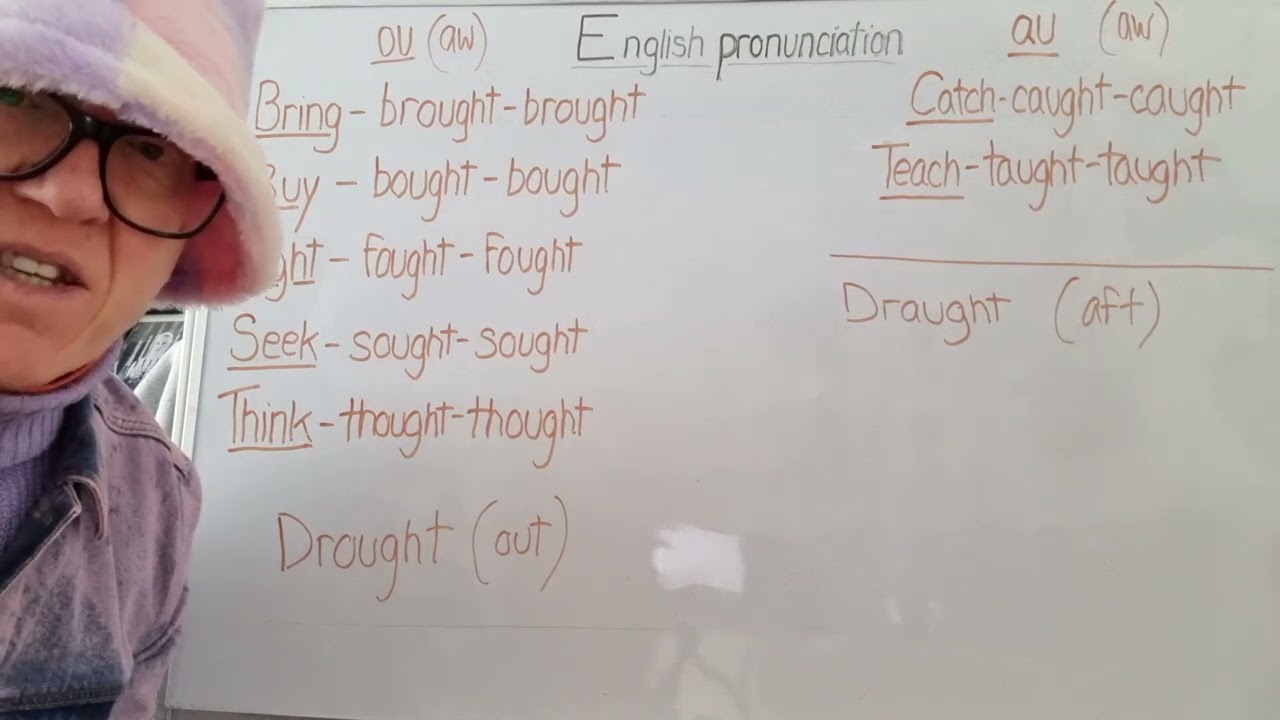 English pronunciation
ou (aw)
Bring - brought - brought
uy - bought - bought
ght - fought - Fought
Seek - sought - sought
Think - thought - thought
Drought (out)
au (aw)
Catch - caught - caught
Teach - taught - taught
Draught (aft)